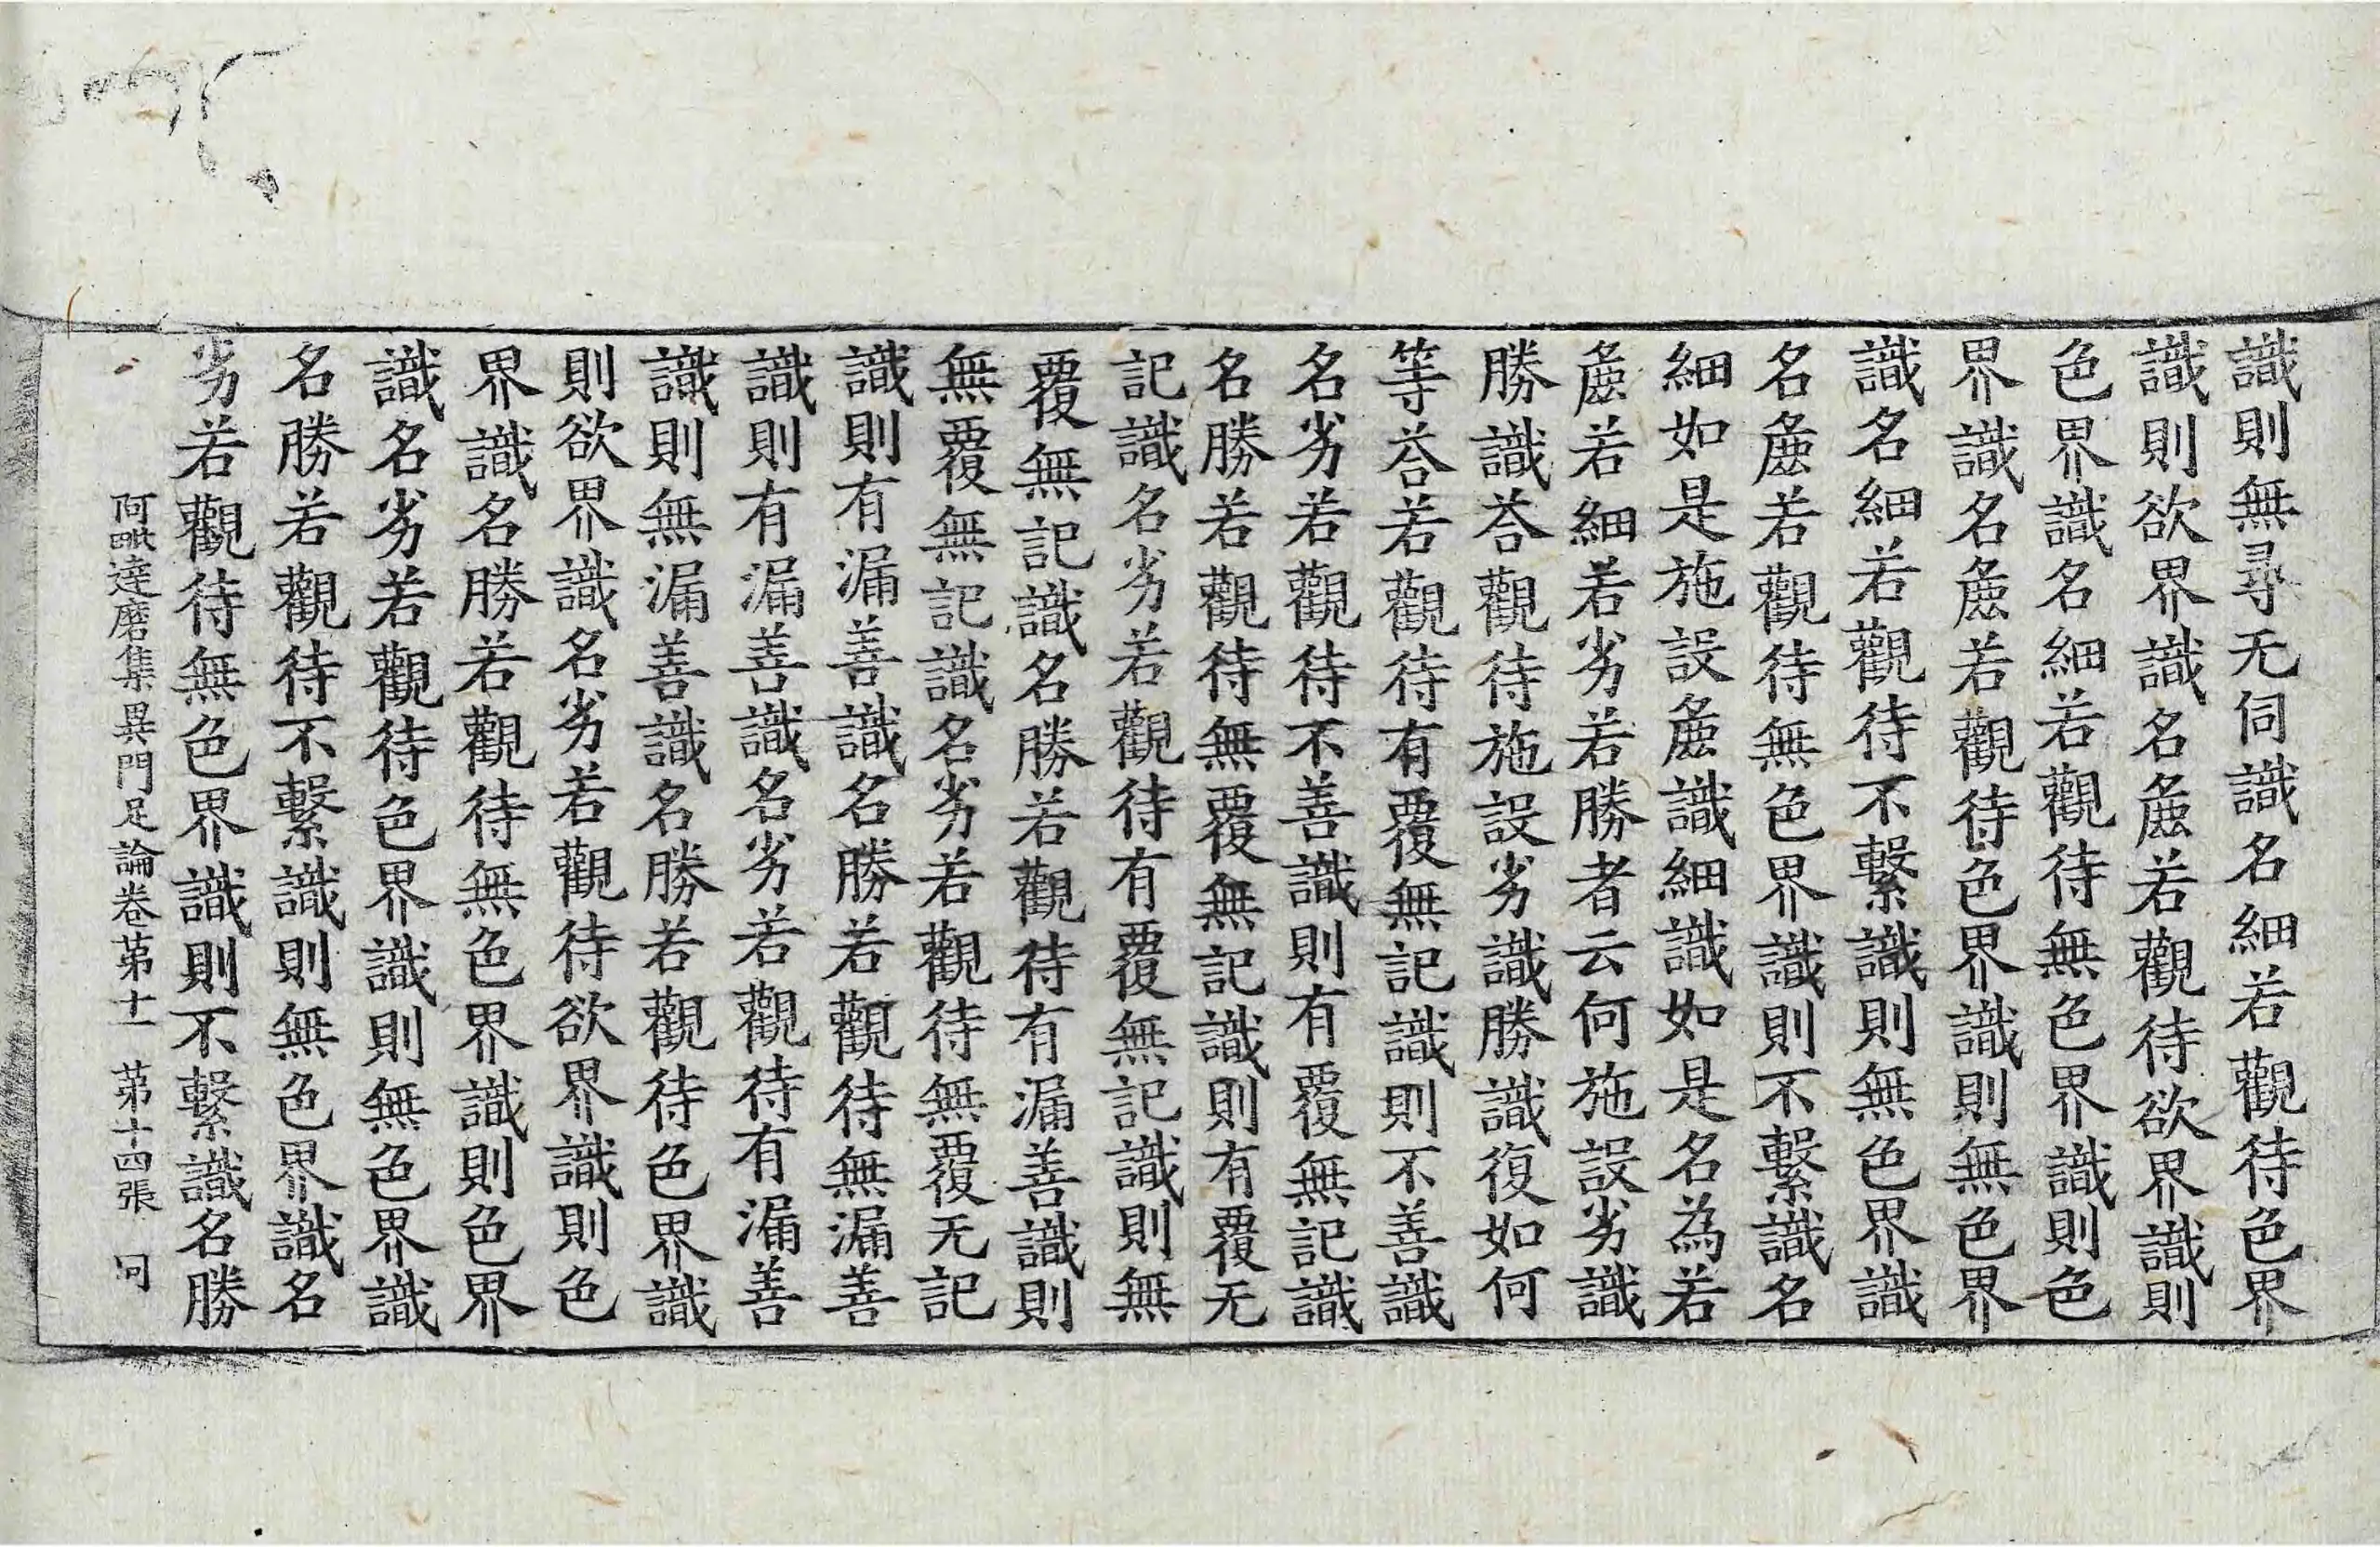 識則無尋无伺識名細若觀待色界
識則欲界識名麁若觀待欲界識則
色界識名細若觀待無色界識則色
界識名麁若觀待色界識則無色界
識名細若觀待不繫識則無色界識
名麁若觀待無色界識則不繫識名
細如是施設麁識細識如是名為若
麁若細若劣若勝者云何施設劣識
勝識荅觀待施設劣識勝識復如何
等荅若觀待有覆無記識則不善識
名劣若觀待不善識則有覆無記識
名勝若觀待無覆無記識則有覆无
記識名劣若觀待有覆無記識則無
覆無記識名勝若觀待有漏善識則
無覆無記識名劣若觀待無覆无記
識則有漏善識名勝若觀待無漏善
識則有漏善識名劣若觀待有漏善
識則無漏善識名勝若觀待色界識
則欲界識名劣若觀待欲界識則色
界識名勝若觀待無色界識則色界
識名劣若觀待色界識則無色界識
名勝若觀待不繫識則無色界識名
劣若觀待無色界識則不繫識名勝
阿毗達磨集異門足論卷苐十一 苐十四張 冋